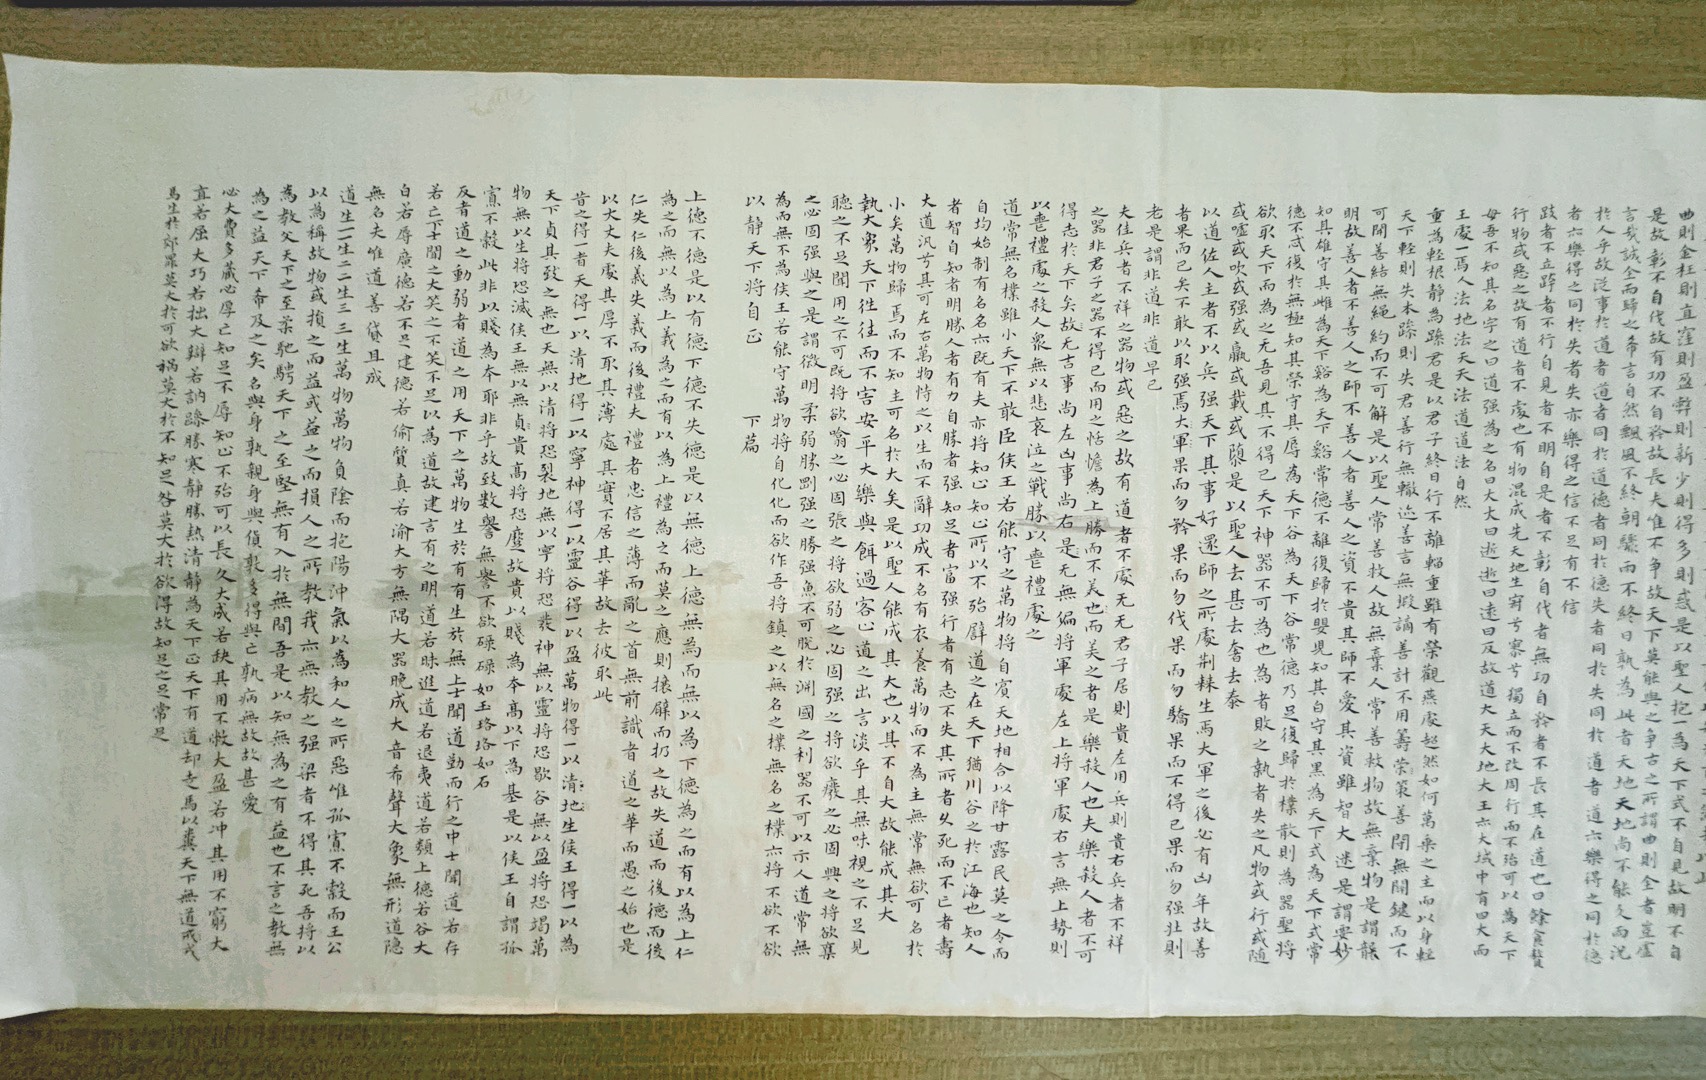 曲則全枉則直窪則盈弊則新少則得多則惑是以聖人抱一為天下式不自見故明不自
是故彰不自伐故有功不自矜故長夫唯不争故天下莫能與之争古之所謂曲則全者豈虛
言哉誠全而歸之希言自然飄風不終朝驟雨不終日孰為此者天地天地尚不能久而況
於人乎故從事於道者道者同於道德者同於德失者同於失同於道者道亦樂得之同於德
者亦樂得之同於失者失亦樂得之信不足有不信
跂者不立跨者不行自見者不明自是者不彰自伐者無功自矜者不長其在道也曰餘食贅
行物或惡之故有道者不處也有物混成先天地生寂兮寥兮獨立而不改周行而不殆可以為天下
母吾不知其名字之曰道强為之名曰大大曰逝逝曰遠曰反故道大天大地大王亦大域中有四大而
王處一焉人法地法天天法道道法自然
重為輕根靜為躁君是以君子終日行不離輜重雖有榮觀燕處超然如何萬乘之主而以身輕
天下輕則失本躁則失君善行無轍迹善言無瑕謫善計不用籌策善閉無關鍵而不
可開善結無繩約而不可解是以聖人常善救人故無棄人常善救物故無棄物是謂襲
明故善人者不善人之師不善人者善人之資不貴其師不愛其資雖智大迷是謂要妙
知其雄守其雌為天下谿為天下谿常德不離復歸於嬰兒知其白守其黑為天下式為天下式常
德不忒復於無極知其榮守其辱為天下谷為天下谷常德乃足復歸於樸散則為器聖將
欲取天下而為之无吾見其不得已天下神器不可為也為者敗之執者失之凡物或行或隨
或噓或吹或强或羸或載或隳是以聖人去甚去奢去泰
以道佐人主者不以兵强天下其事好還師之所處荆棘生焉大軍之後必有凶年故善
者果而已矣不敢以取强焉大軍果而勿矜果而勿伐果而勿驕果而不得已果而勿强壮則
老是謂非道非道早已
夫佳兵者不祥之器物或惡之故有道者不處无无君子居則貴左用兵則貴右兵者不祥
之器非君子之器不得已而用之恬憺為上勝而不美也而美之者是樂殺人也夫樂殺人者不可
得志於天下矣故无古事尚左凶事尚右是无無偏將軍處左上將軍處右言無上勢則
以喪禮處之殺人眾無以悲哀泣之戰勝以喪禮處之
道常無名樸雖小天下不敢臣侯王若能守之萬物將自賓天地相合以降甘露民莫之令而
自均始制有名名亦既有夫亦将知止知止所以不殆辟道之在天下猶川谷之於江海也知人
者智自知者明勝人者有力自勝者强知足者富强行者有志不失其所者久死而不亡者壽
大道汎兮其可左右萬物恃之以生而不辭功成不名有衣養萬物而不為主無常無欲可名於
小矣萬物歸焉而不知主可名於大矣是以聖人能成其大也以其不自大故能成其大
執大象天下往往而不害安平大樂與餌過客止道之出言淡乎其無味視之不足見
聽之不足聞用之不可既将欲噏之必固張之将欲弱之必固强之将欲癈之必固興之将欲棄
之必固與之是謂微明柔弱勝剛强之勝强魚不可脱於渊國之利器不可以示人道常無
為而無不為侯王若能守萬物将自化化而欲作吾将鎮之以無名之樸無名之樸亦将不欲不欲
以靜天下将自正
下篇
上德不德是以有德下德不失德是以無德上德無為而無以為下德為之而有以為上仁
為之而無以為上義為之而有以為上禮為之而莫之應則攘臂而扔之故失道而後德而後
仁失仁後義失義而後禮夫禮者忠信之薄而亂之首無前識者道之華而愚之始也是
以大丈夫處其厚不取其薄處其實不居其華故去彼取此
昔之得一者天得一以清地得一以寧神得一以靈谷得一以盈萬物得一以清地生侯王得一以為
天下貞其致之無也天無以清将恐裂地無以寧将恐發神無以靈将恐歇谷無以盈将恐竭萬
物無以生将恐滅侯王無以無貞貴高将恐蹷故貴以賤為夲高以下為基是以侯王自謂孤
寡不穀此非以賤為夲耶非乎故致數譽無譽不欲碌碌如玉珞珞如石
反者道之動弱者道之用天下之萬物生於有有生於無上士聞道勤而行之中士聞道若存
若亡下士聞之大笑之不笑不足以為道故建言有之明道若昧進道若退夷道若纇上德若谷大
白若辱廣德若不足建德若偷質真若渝大方無隅大器晚成大音希聲大象無形道隱
無名夫惟道善貸且成
道生一生二二生三三生萬物萬物負陰而抱陽沖氣以為和人之所惡惟孤寡不穀而王公
以為稱故物或損之而益或益之而損人之所教我亦無教之强梁者不得其死吾将以
為教父天下之至柔馳騁天下之至堅無有入於無間吾是以知無為之有益也不言之教無
為之益天下希及之矣名與身孰親身與貨孰多得與亡孰病無故故甚愛
必大費多藏必厚亡知足不辱知止不殆可以長久大成若缺其用不敝大盈若冲其用不窮大
直若屈大巧若拙大辯若訥躁勝寒静勝熱清靜為天下正天下有道却走馬以糞天下無道戎戎
馬生於郊罪莫大於可欲禍莫大於不知足咎莫大於欲得故知足之足常足